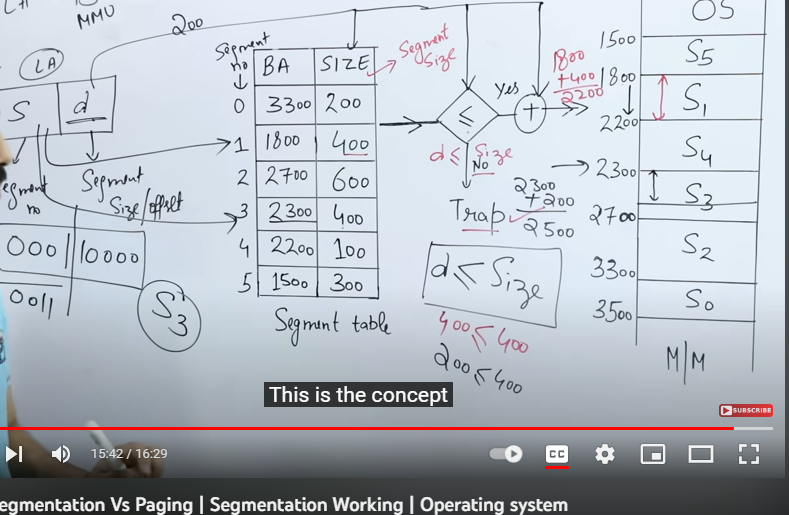 MMU
200
LA
S d
Segment no
Segment Size/offset
0001 10000
0011
S3
Segment no
BA SIZE
Segment Size
0 3300 200
1 1800 400
2 2700 600
3 2300 400
4 2200 100
5 1500 300
Segment table
≤
yes
+
d ≤ Size
No
Trap
1800
+400
2200
2300
+200
2500
d ≤ Size
400 ≤ 400
200 ≤ 400
OS
1500
S5
1800
S1
2200
S4
2300
S3
2700
S2
3300
S0
3500
M/M
This is the concept
SUBSCRIBE
15:42 / 16:29
CC
egmentation Vs Paging | Segmentation Working | Operating system